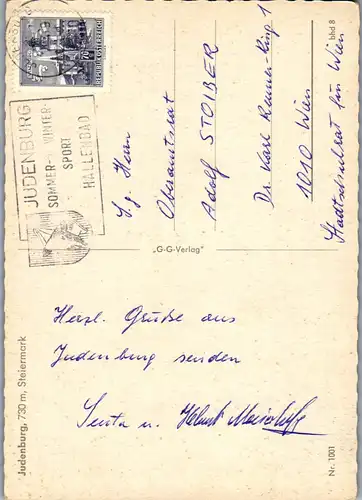 JUDENBURG
SOMMER- WINTER-
SPORT
HALLENBAD
REPUBLIK ÖSTERREICH
bhd 8
S. g. Herrn
Oberamtsrat
Adolf STOIBER
Dr. Karl Renner-Ring 1
1010 Wien
Stadtschulrat für Wien
„G-G-Verlag"
Herzl. Grüße aus
Judenburg senden
Senta u. Helmut
Judenburg, 730 m, Steiermark
Nr. 1001